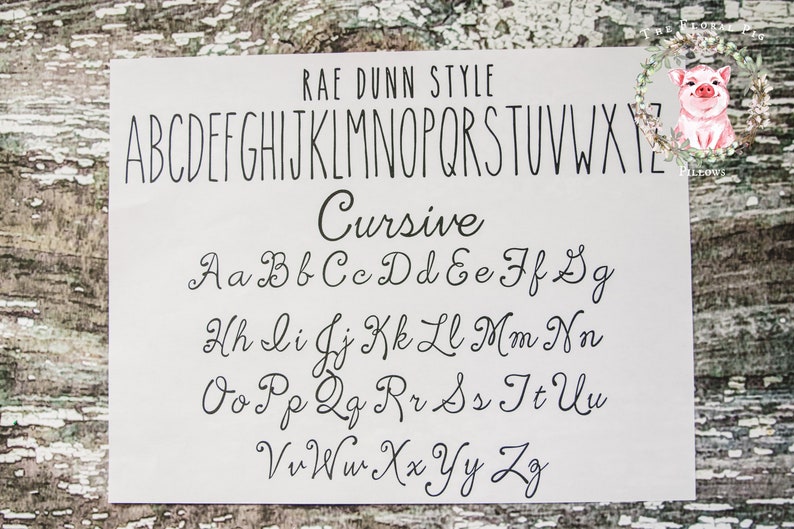 The Floral Pig
Pillows
RAE DUNN STYLE
ABCDEFGHIJKLMNOPQRSTUVWXYZ
Cursive
Aa Bb Cc Dd Ee Ff Gg
Hh Ii Jj Kk Ll Mm Nn
Oo Pp Qq Rr Ss Tt Uu
Vv Ww Xx Yy Zz